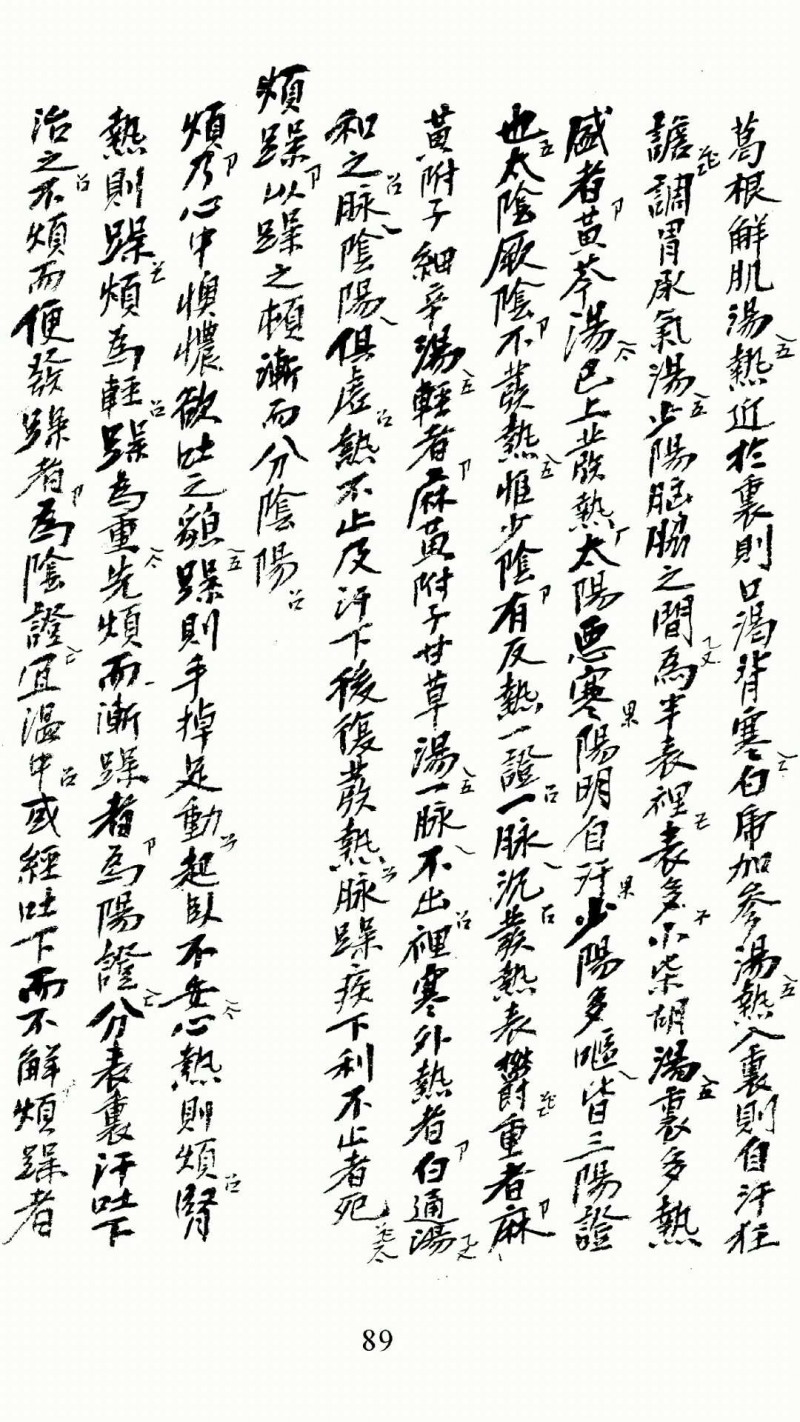 葛根解肌湯熱近於裏則口渴背寒白虎加參湯熱入裏則自汗狂
譫調胃承氣湯少陽胸脇之間為半表裡表多小柴胡湯裏多熱
盛者黃芩湯已上並發熱太陽惡寒陽明自汗少陽多嘔皆三陽證
也太陰厥陰不發熱惟少陰有反熱一證一脉沉發熱表欝重者麻
黃附子細辛湯輕者麻黃附子甘草湯一脉不出裡寒外熱者白通湯
和之脉陰陽俱虛熱不止及汗下後復發熱脉躁疾下利不止者死
煩躁以躁之頓漸而分陰陽
煩乃心中懊憹欲吐之貌躁則手掉足動起臥不安心熱則煩腎
熱則躁煩為輕躁為重先煩而漸躁者為陽證分表裏汗吐下
治之不煩而便發躁者為陰證宜溫中或經吐下而不解煩躁者
89